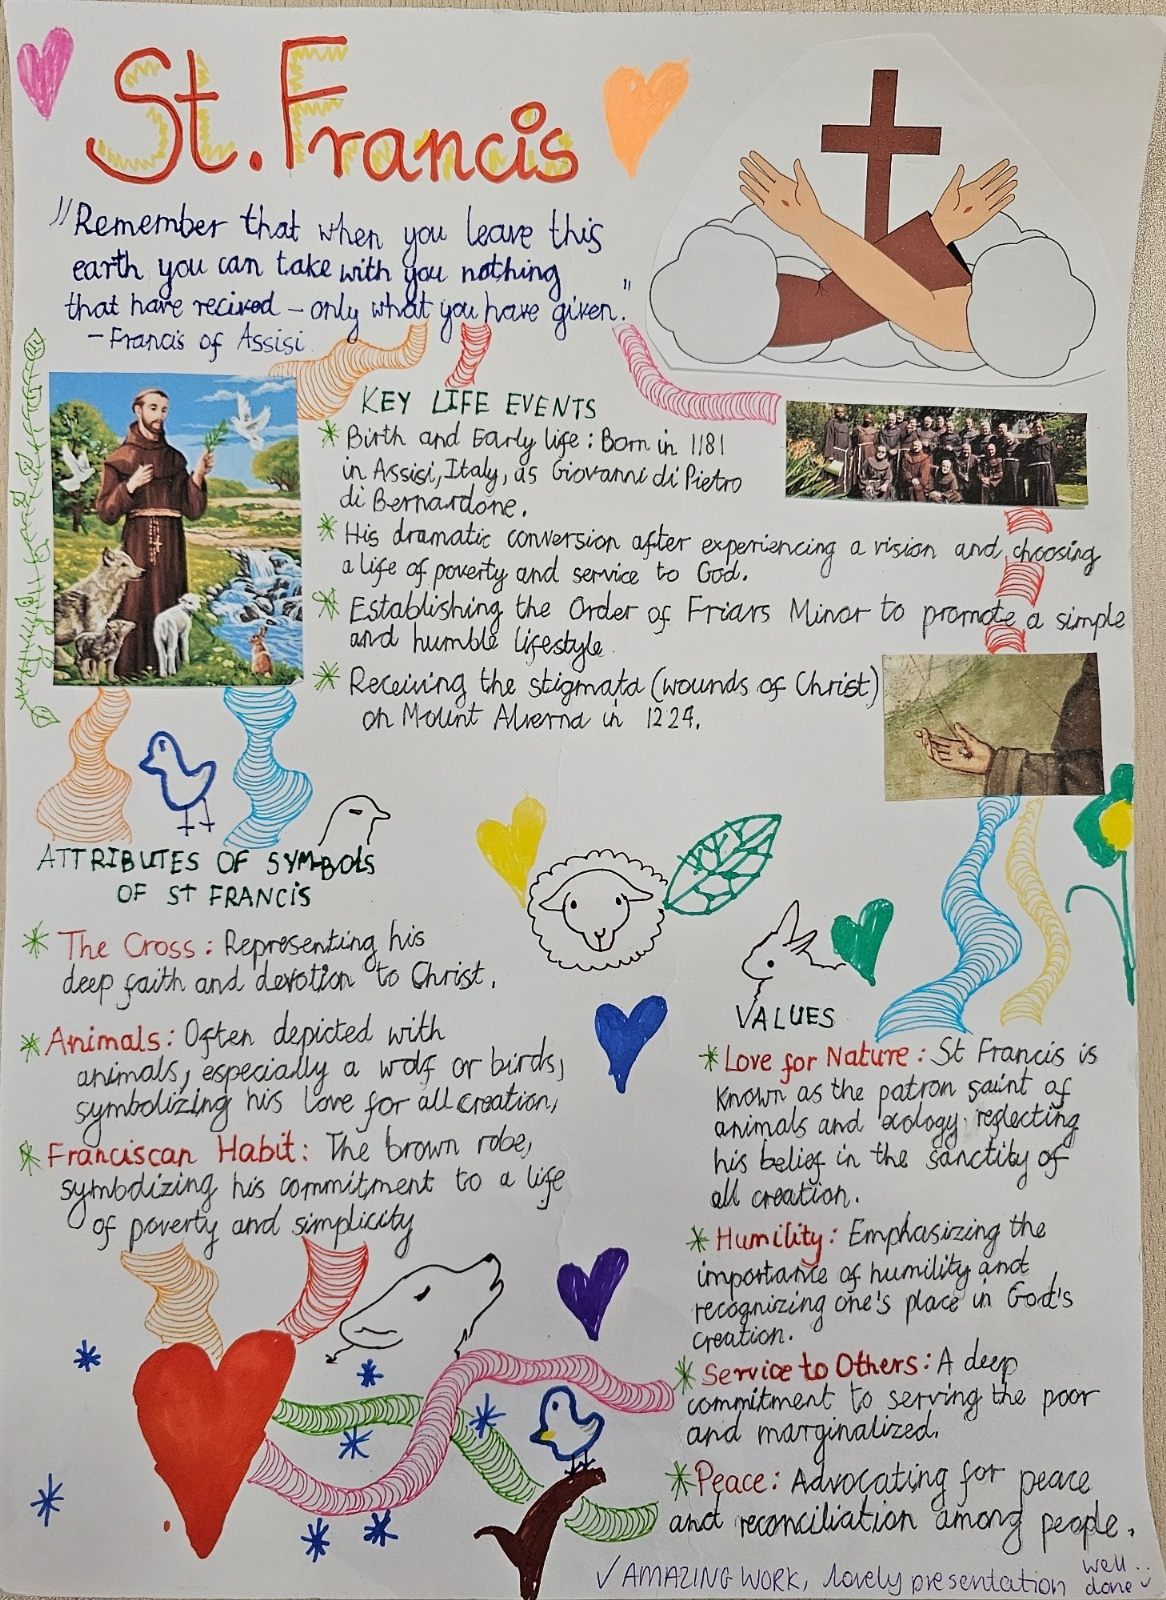 St. Francis
"Remember that when you leave this
earth you can take with you nothing
that have recived – only what you have given."
– Francis of Assisi
KEY LIFE EVENTS
* Birth and Early life : Born in 1181
in Assisi, Italy, as Giovanni di Pietro
di Bernardone.
* His dramatic conversion after experiencing a vision and choosing
a life of poverty and service to God.
* Establishing the Order of Friars Minor to promote a simple
and humble lifestyle
* Receiving the stigmata (wounds of Christ)
on Mount Alverna in 1224.
ATTRIBUTES OF SYMBOLS
OF ST FRANCIS
* The Cross : Representing his
deep faith and devotion to Christ.
* Animals : Often depicted with
animals, especially a wolf or birds,
symbolizing his love for all creation,
* Franciscan Habit : The brown robe,
symbolizing his commitment to a life
of poverty and simplicity
VALUES
* Love for Nature : St Francis is
known as the patron saint of
animals and ecology reflecting
his belief in the sanctity of
all creation.
* Humility : Emphasizing the
importance of humility and
recognizing one's place in God's
creation.
* Service to Others : A deep
commitment to serving the poor
and marginalized.
* Peace : Advocating for peace
and reconciliation among people.
✓ AMAZING WORK, lovely presentation well..
done